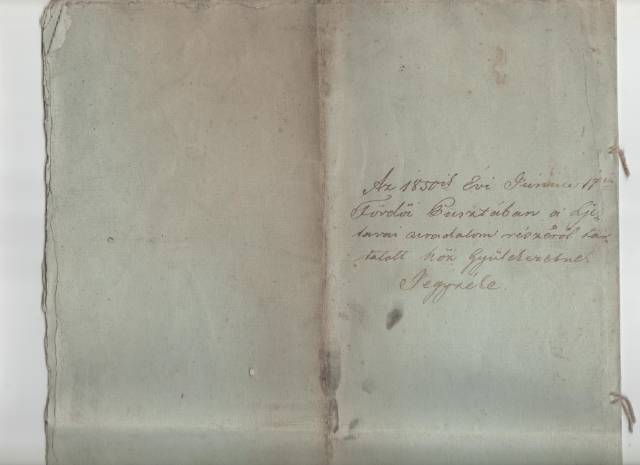 Az 1850ik Évi Június 17én
Fördői Pusztában a Lje-
tavai uradalom részéről tar-
tatott köz Gyülekezetnek
Jegyzéke.